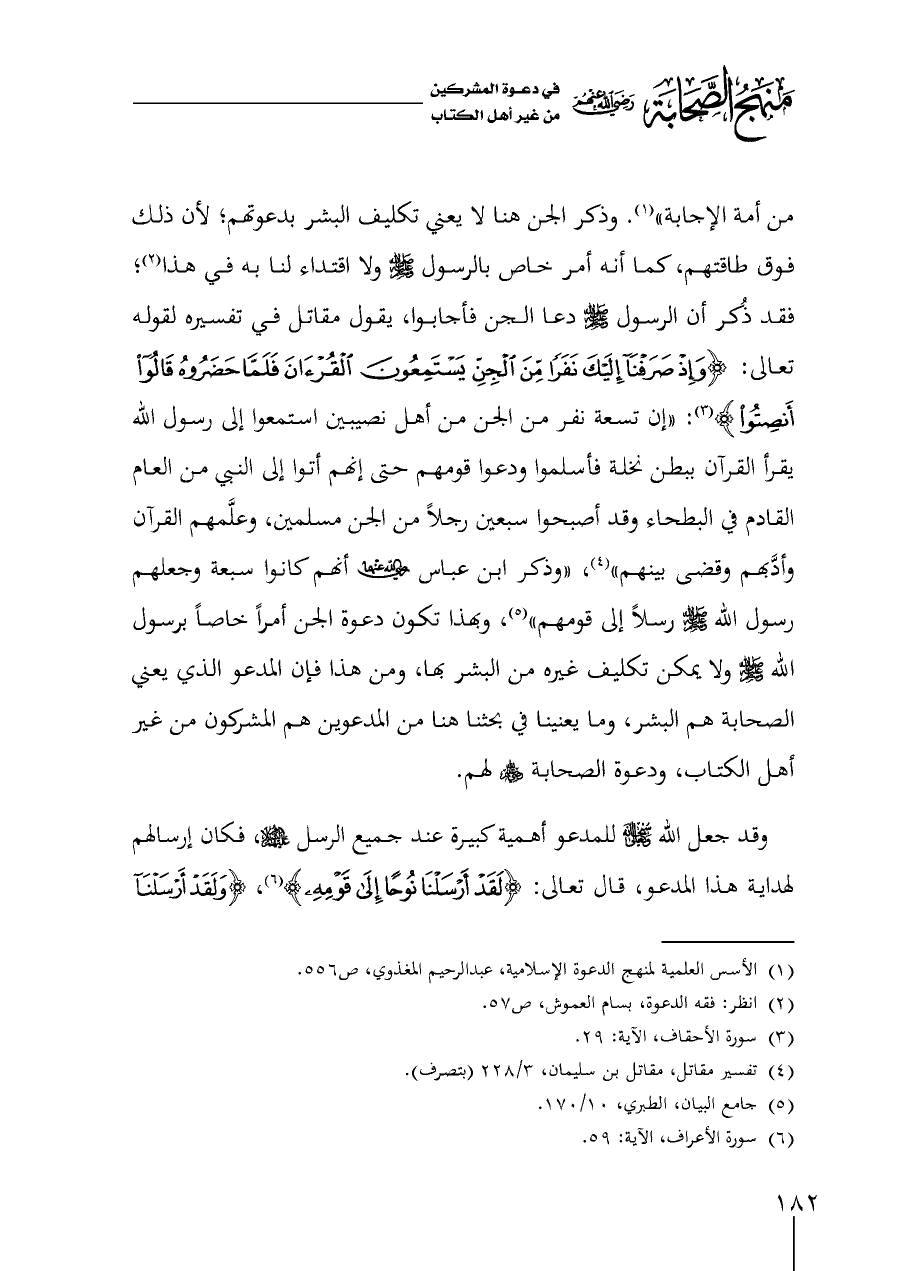 منهج الصحابة رضي الله عنهم في دعوة المشركين
من غير أهل الكتاب
من أمة الإجابة»(١). وذكر الجن هنا لا يعني تكليف البشر بدعوتهم؛ لأن ذلك
فوق طاقتهم، كما أنه أمر خاص بالرسول ﷺ ولا اقتداء لنا به في هذا(٢)؛
فقد ذُكر أن الرسول ﷺ دعا الجن فأجابوا، يقول مقاتل في تفسيره لقوله
تعالى: ﴿وَإِذۡ صَرَفۡنَآ إِلَيۡكَ نَفَرٗا مِّنَ ٱلۡجِنِّ يَسۡتَمِعُونَ ٱلۡقُرۡءَانَ فَلَمَّا حَضَرُوهُ قَالُوٓاْ
أَنصِتُواْ﴾(٣): «إن تسعة نفر من الجن من أهل نصيبين استمعوا إلى رسول الله
يقرأ القرآن ببطن نخلة فأسلموا ودعوا قومهم حتى إنهم أتوا إلى النبي من العام
القادم في البطحاء وقد أصبحوا سبعين رجلاً من الجن مسلمين، وعلَّمهم القرآن
وأدَّبهم وقضى بينهم»(٤)، «وذكر ابن عباس رضي الله عنهما أنهم كانوا سبعة وجعلهم
رسول الله ﷺ رسلاً إلى قومهم»(٥)، وبهذا تكون دعوة الجن أمراً خاصاً برسول
الله ﷺ ولا يمكن تكليف غيره من البشر بها، ومن هذا فإن المدعو الذي يعني
الصحابة هم البشر، وما يعنينا في بحثنا هنا من المدعوين هم المشركون من غير
أهل الكتاب، ودعوة الصحابة رضي الله عنهم لهم.
وقد جعل الله للمدعو أهمية كبيرة عند جميع الرسل، فكان إرسالهم
لهداية هذا المدعو، قال تعالى: ﴿لَقَدۡ أَرۡسَلۡنَا نُوحًا إِلَىٰ قَوۡمِهِۦ﴾(٦)، ﴿وَلَقَدۡ أَرۡسَلۡنَآ
(١) الأسس العلمية لمنهج الدعوة الإسلامية، عبدالرحيم المغذوي، ص٥٥٦.
(٢) انظر: فقه الدعوة، بسام العموش، ص٥٧.
(٣) سورة الأحقاف، الآية: ٢٩.
(٤) تفسير مقاتل، مقاتل بن سليمان، ٢٢٨/٣ (بتصرف).
(٥) جامع البيان، الطبري، ١٧٠/١٠.
(٦) سورة الأعراف، الآية: ٥٩.
١٨٢